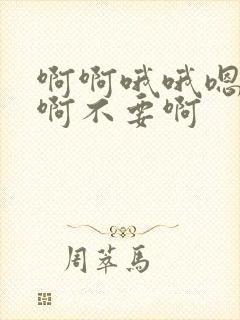 啊啊哦哦嗯
啊不要啊
周萃马